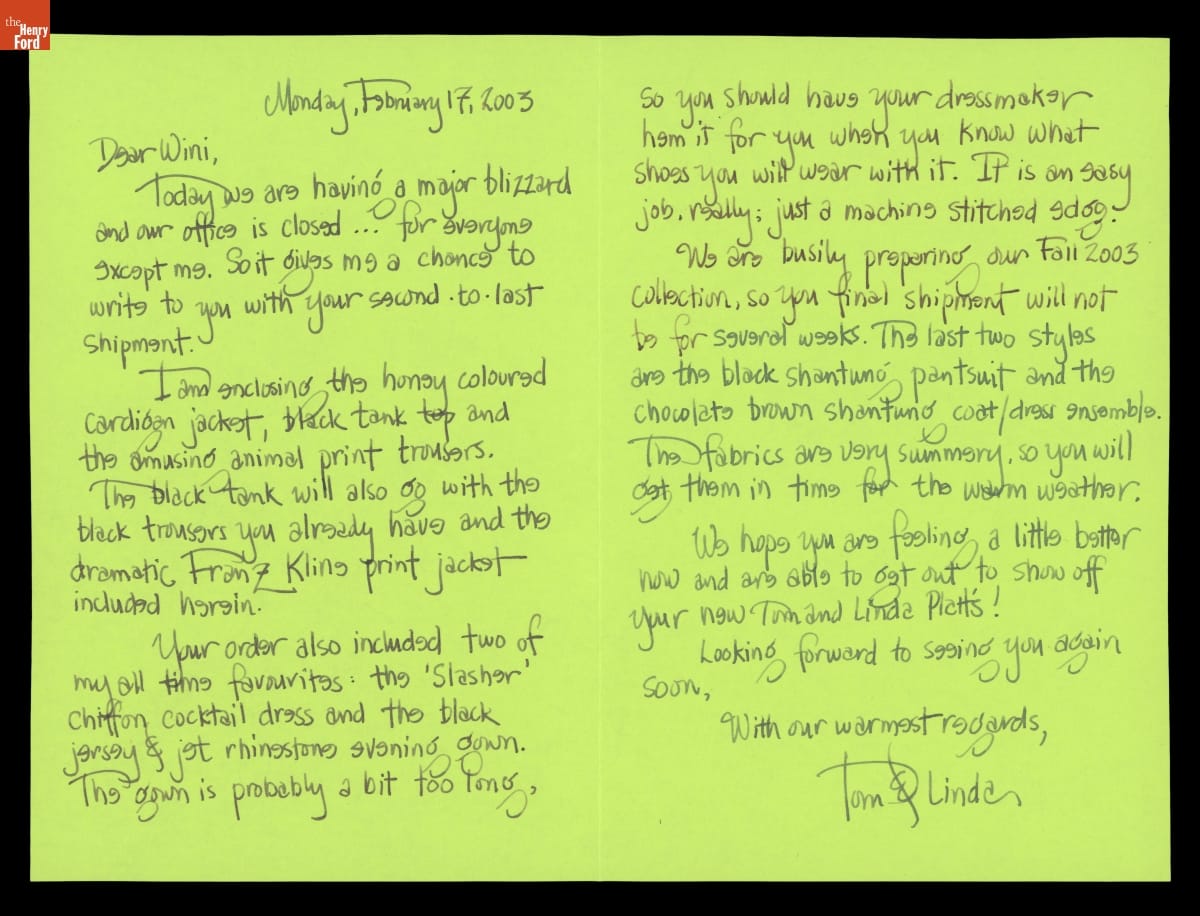 the
Henry
Ford
Monday, February 17, 2003
Dear Wini,
Today we are having a major blizzard
and our office is closed ... for everyone
except me. So it gives me a chance to
write to you with your second-to-last
shipment.
I am enclosing the honey coloured
cardigan jacket, black tank top and
the amusing animal print trousers.
The black tank will also go with the
black trousers you already have and the
dramatic Franz Kline print jacket
included herein.
Your order also included two of
my all time favourites: the 'Slasher'
chiffon cocktail dress and the black
jersey & jet rhinestone evening gown.
The gown is probably a bit too long,
so you should have your dressmaker
hem it for you when you know what
shoes you will wear with it. It is an easy
job, really; just a machine stitched edge.
We are busily preparing our Fall 2003
collection, so you final shipment will not
be for several weeks. The last two styles
are the black shantung pantsuit and the
chocolate brown shantung coat/dress ensemble.
The fabrics are very summery, so you will
get them in time for the warm weather.
We hope you are feeling a little better
now and are able to get out to show off
your new Tom and Linda Platt's!
Looking forward to seeing you again
soon,
With our warmest regards,
Tom & Linda